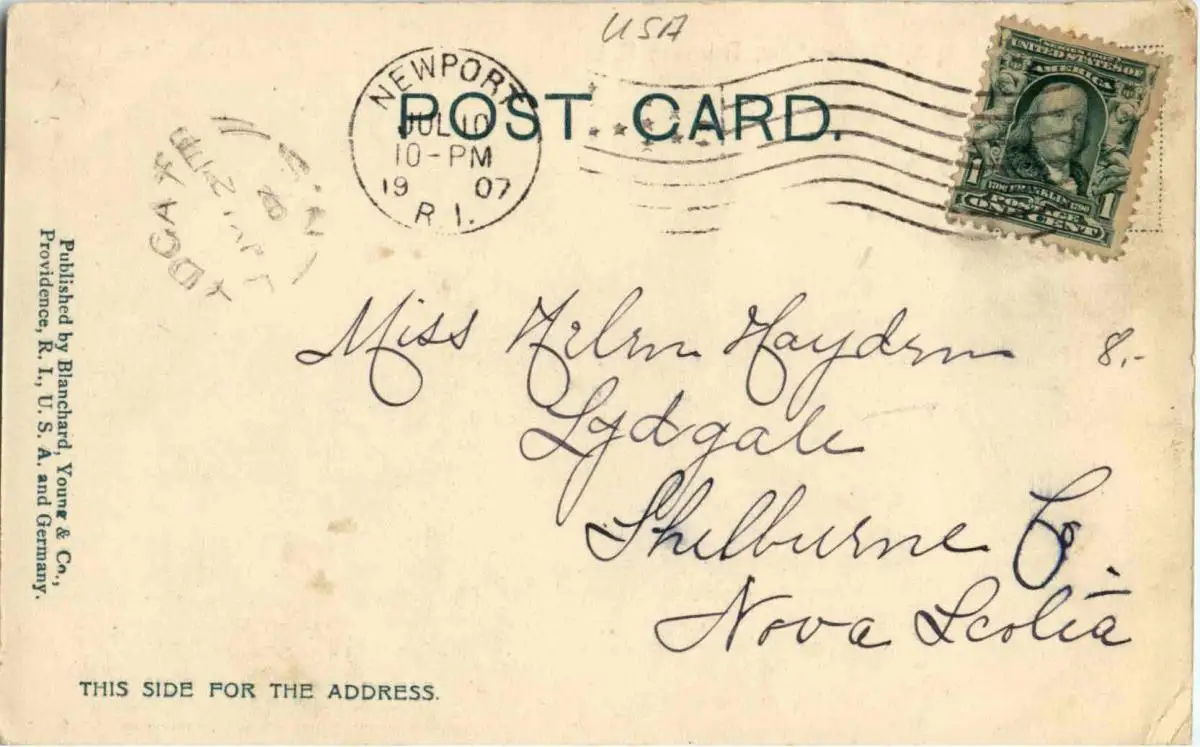 USA
POST CARD.
NEWPORT
JUL 10
10-PM
19 07
R.I.
SERIES 1902
UNITED STATES OF
AMERICA
1706 FRANKLIN 1790
1 POSTAGE 1
ONE CENT
Miss Helen Hayden
8.-
Lydgate
Shelburne Co.
Nova Scotia
Published by Blanchard, Young & Co.,
Providence, R. I., U. S. A. and Germany.
THIS SIDE FOR THE ADDRESS.